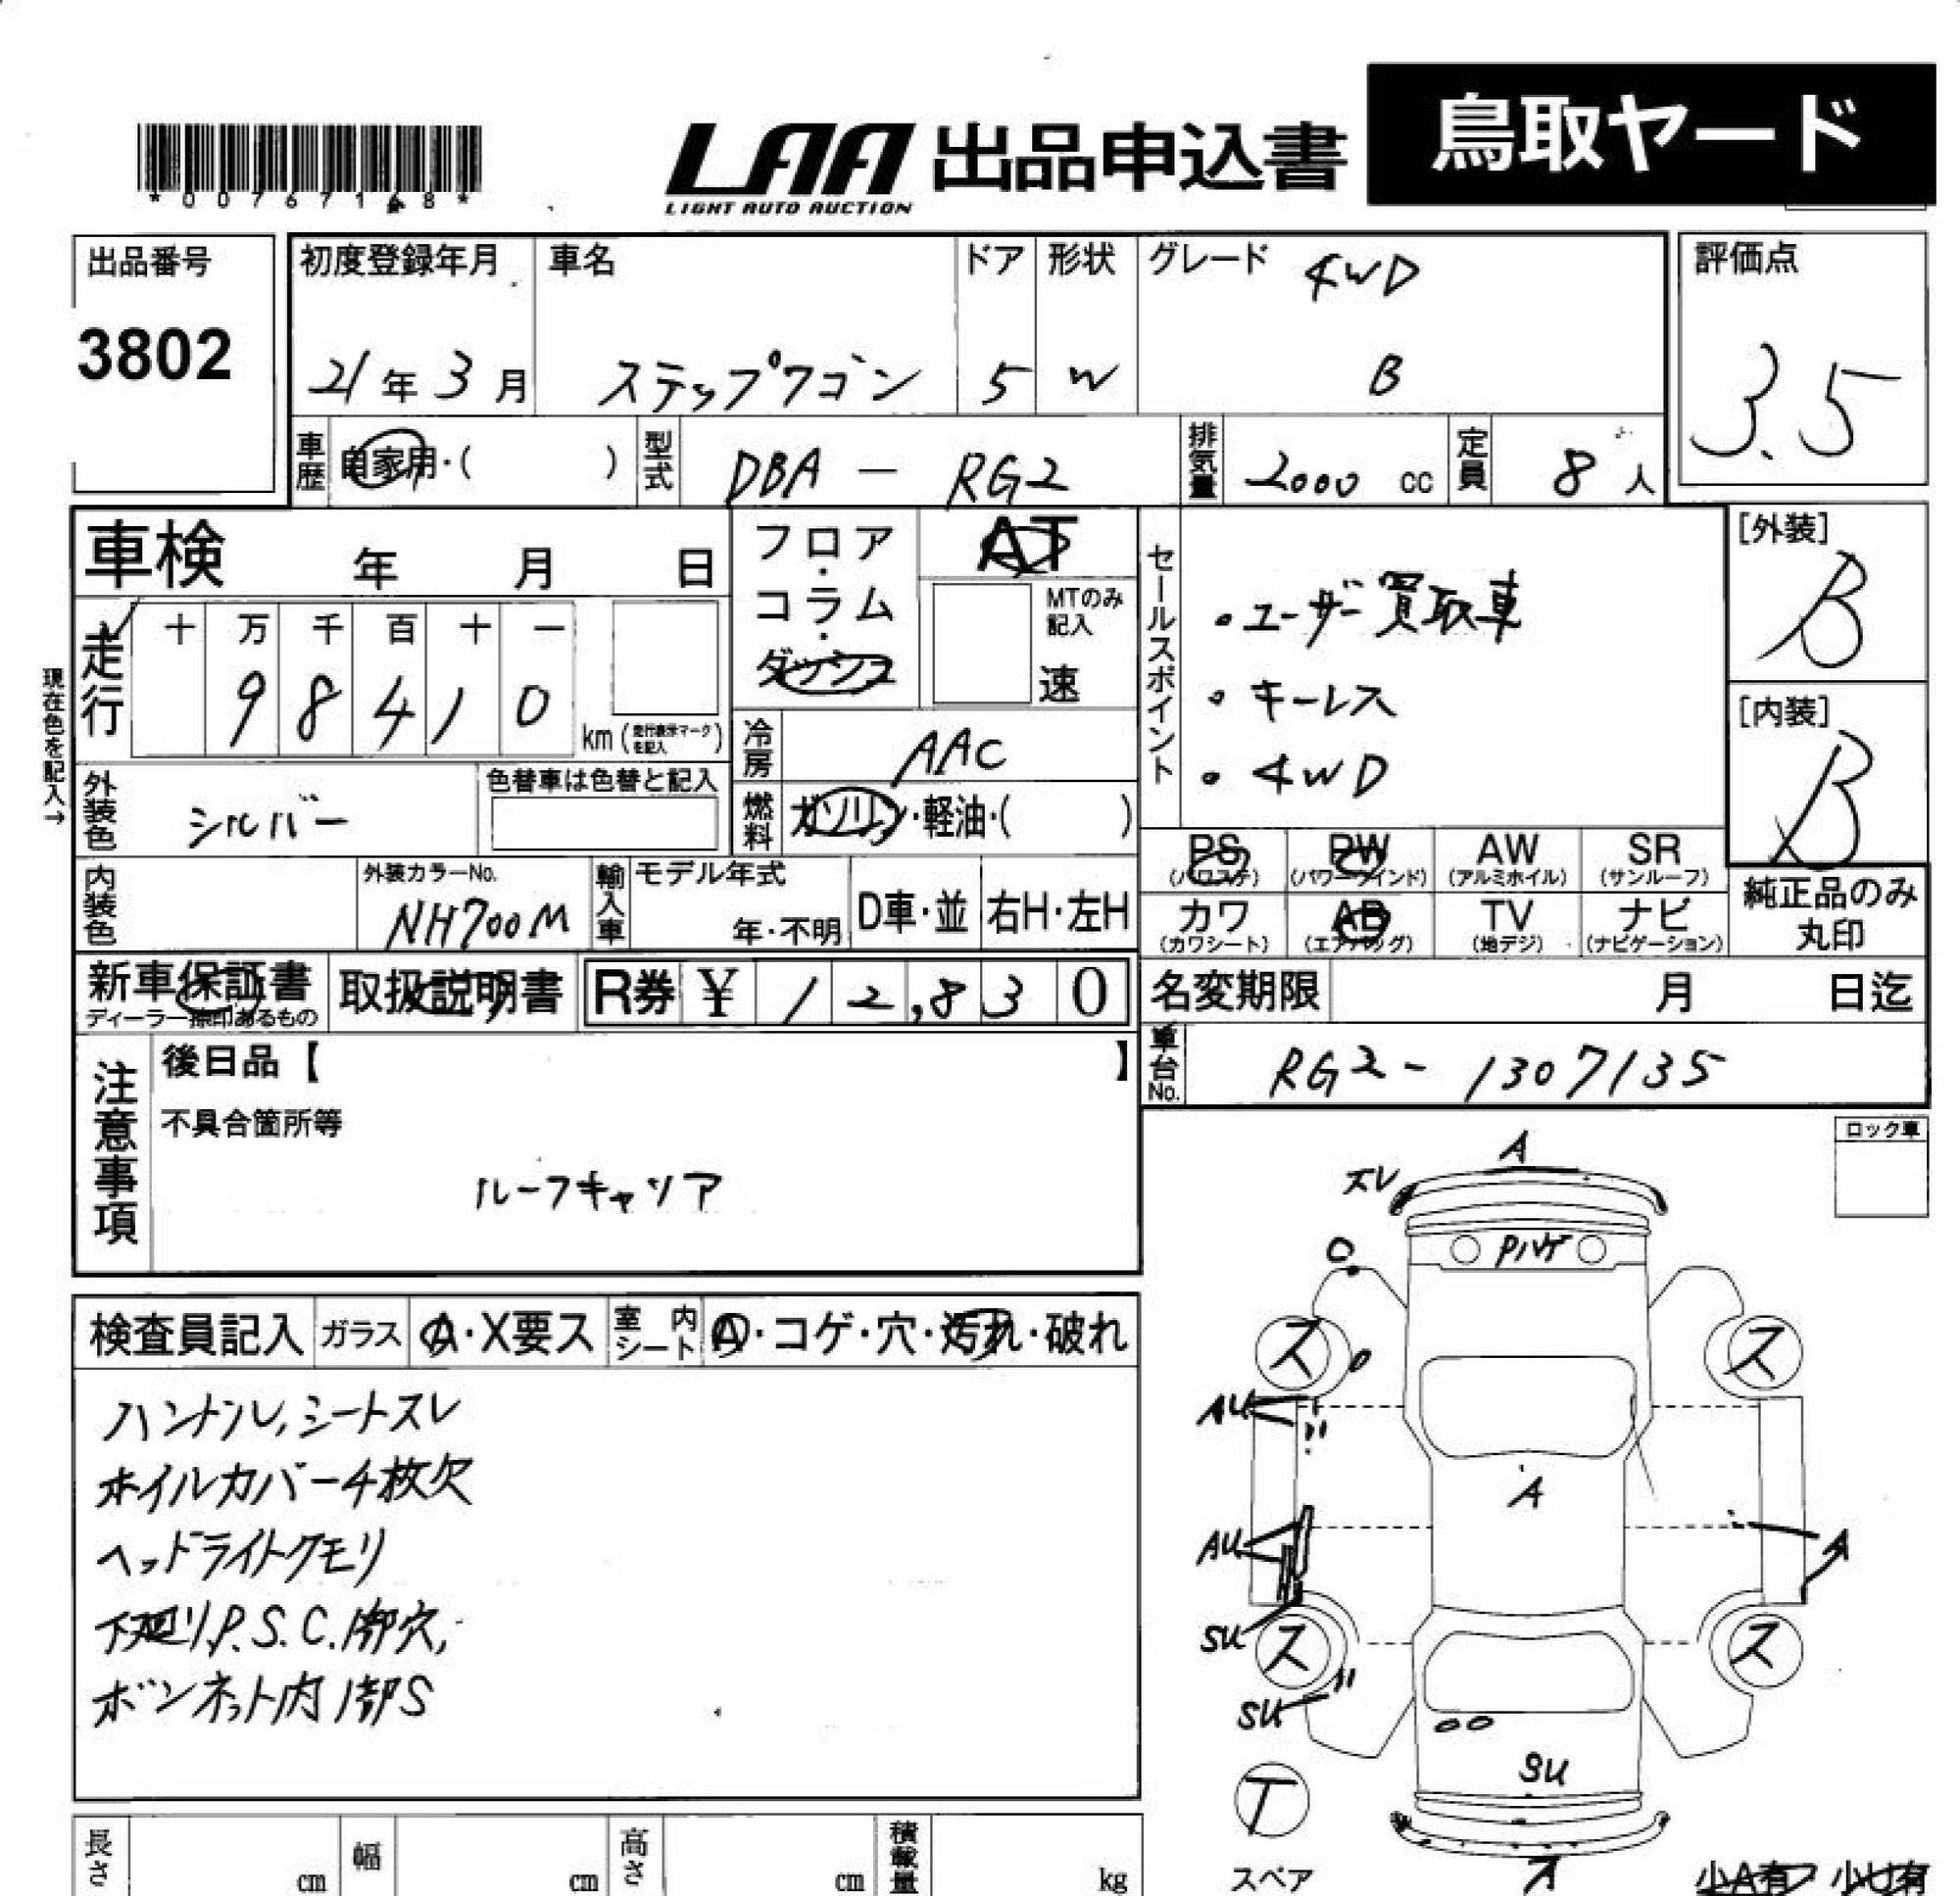 LAA 出品申込書 鳥取ヤード
LIGHT AUTO AUCTION
*00767168*
出品番号
3802
初度登録年月
21年3月
車名
ステップワゴン
ドア
5
形状
W
グレード
4WD
B
評価点
3.5
車歴
自家用・( )
型式
DBA - RG2
排気量
2000 cc
定員
8人
車検 年 月 日
フロア・コラム・ダッシュ
AT
MTのみ記入
速
セールスポイント
・ユーザー買取車
・キーレス
・4WD
[外装]
B
[内装]
B
現在色を記入→
走行
十万千百十一
98410
km(走行表示マークを記入)
冷房
AAC
燃料
ガソリン・軽油・( )
外装色
シルバー
色替車は色替と記入
内装色
外装カラーNo.
NH700M
輸入車
モデル年式
年・不明
D車・並
右H・左H
PS
(パワステ)
PW
(パワーウインド)
AW
(アルミホイル)
SR
(サンルーフ)
カワ
(カワシート)
AB
(エアバッグ)
TV
(地デジ)
ナビ
(ナビゲーション)
純正品のみ
丸印
新車保証書
ディーラー捺印あるもの
取扱説明書
R券 ¥ 12,830
名変期限 月 日迄
車台No.
RG2-1307135
注意事項
後日品【 】
不具合箇所等
ルーフキャリア
ロック車
検査員記入
ガラス
A・X要ス
室内シート
A・コゲ・穴・汚れ・破れ
ハンドル,シートスレ
ホイルカバー4枚欠
ヘッドライトクモリ
下廻り,P.S.C.1部穴,
ボンネット内1部S
A
スレ
Pハゲ
ス
ス
AU
A
AU
A
SU
ス
ス
SU
SU
T
スペア
長さ cm
幅 cm
高さ cm
積載量 kg
少A有 少U有